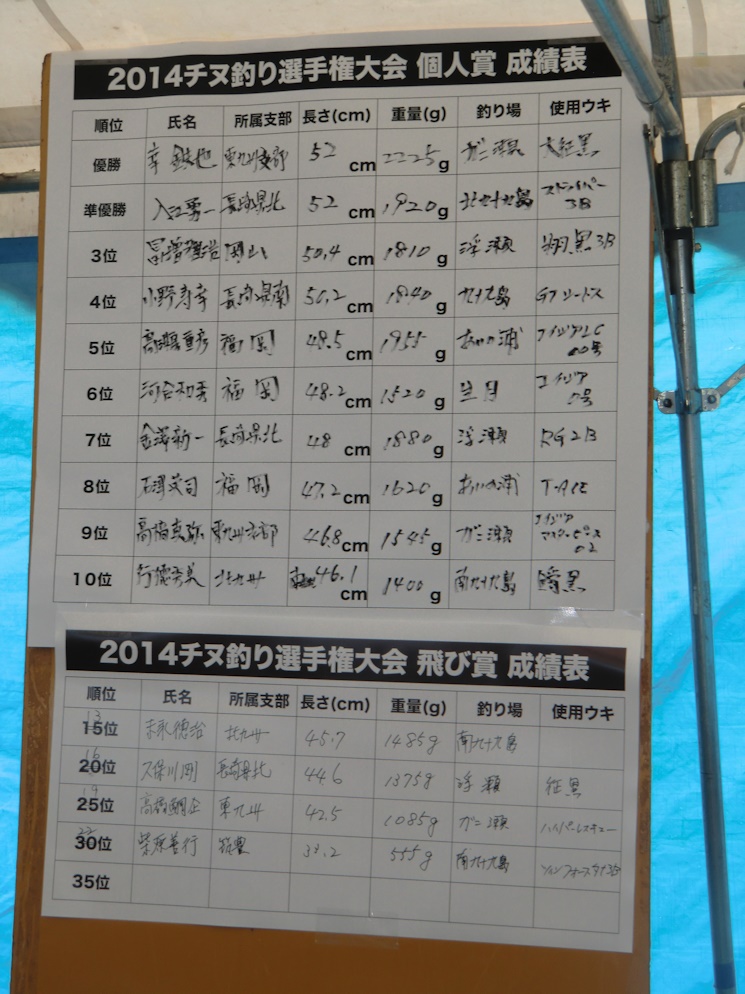 2014チヌ釣り選手権大会 個人賞 成績表
順位 氏名 所属支部 長さ(cm) 重量(g) 釣り場 使用ウキ
優勝 幸 東九州支部 52 cm 2225g ガニ瀬 大征黒
準優勝 入江勇一 長崎県北 52 cm 1920g 北九十九島 3B
3位 岡山 50.4 cm 1810 g 浮瀬 翔黒3B
4位 小野寿幸 長崎県南 50.2 cm 1840 g 九十九島 GTソードス
5位 重彦 福岡 48.5 cm 1955 g あいの浦 00号
6位 河合和 福岡 48.2 cm 1520 g 生月 エイジア 0号
7位 金澤新一 長崎県北 48 cm 1880 g 浮瀬 RG2B
8位 石津文司 福岡 47.2 cm 1620 g あいの浦 T-ACE
9位 高橋真弥 東九州支部 46.8cm 1545 g ガニ瀬 エイジア マスターピース 02
10位 行徳 北九州 46.1 cm 1400 g 南九十九島 黒
2014チヌ釣り選手権大会 飛び賞 成績表
順位 氏名 所属支部 長さ(cm) 重量(g) 釣り場 使用ウキ
13
15位 末永徳治 北九州 45.7 1485g 南九十九島
16
20位 久保川剛 長崎県北 44.6 1375g 浮瀬 征黒
19
25位 高橋 東九州 42.5 1085g ガニ瀬 ハイパーレスキュー
22
30位 柴原善行 筑豊 33.2 555g 南九十九島
35位